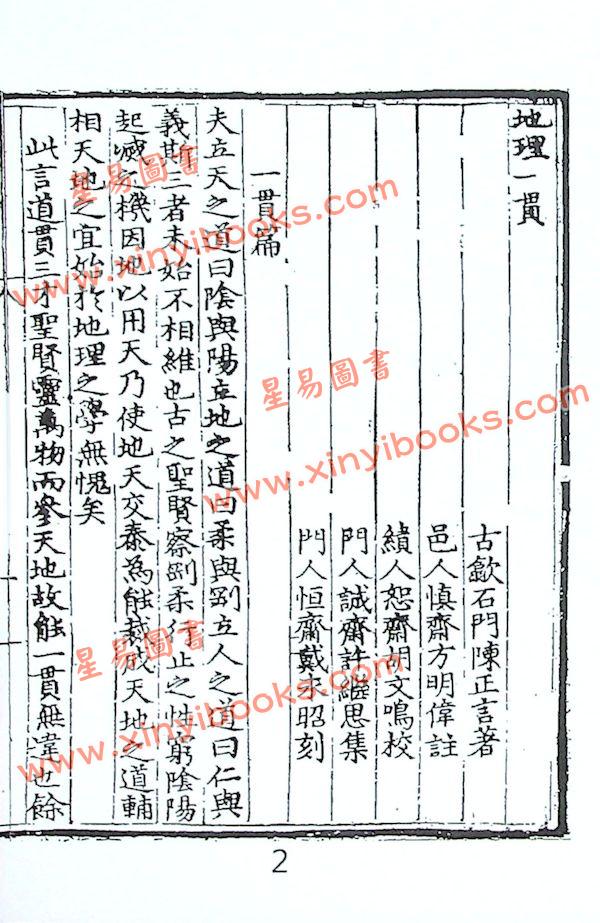 地理一貫
古歙石門陳正言著
邑人慎齋方明偉註
績人恕齋胡文鳴校
門人誠齋許繼思集
門人恒齋戴来昭刻
一貫篇
夫立天之道曰陰與陽立地之道曰柔與剛立人之道曰仁與
義斯三者未始不相維也古之聖賢察剛柔行止之性窮陰陽
起滅之機因地以用天乃使地天交泰為能裁成天地之道輔
相天地之宜始於地理之學無愧矣
此言道貫三才聖賢靈萬物而參天地故能一貫無違也餘
2
星易圖書
www.xinyibooks.com
星易圖書
www.xinyibooks.com
星易圖書
www.xinyibooks.com